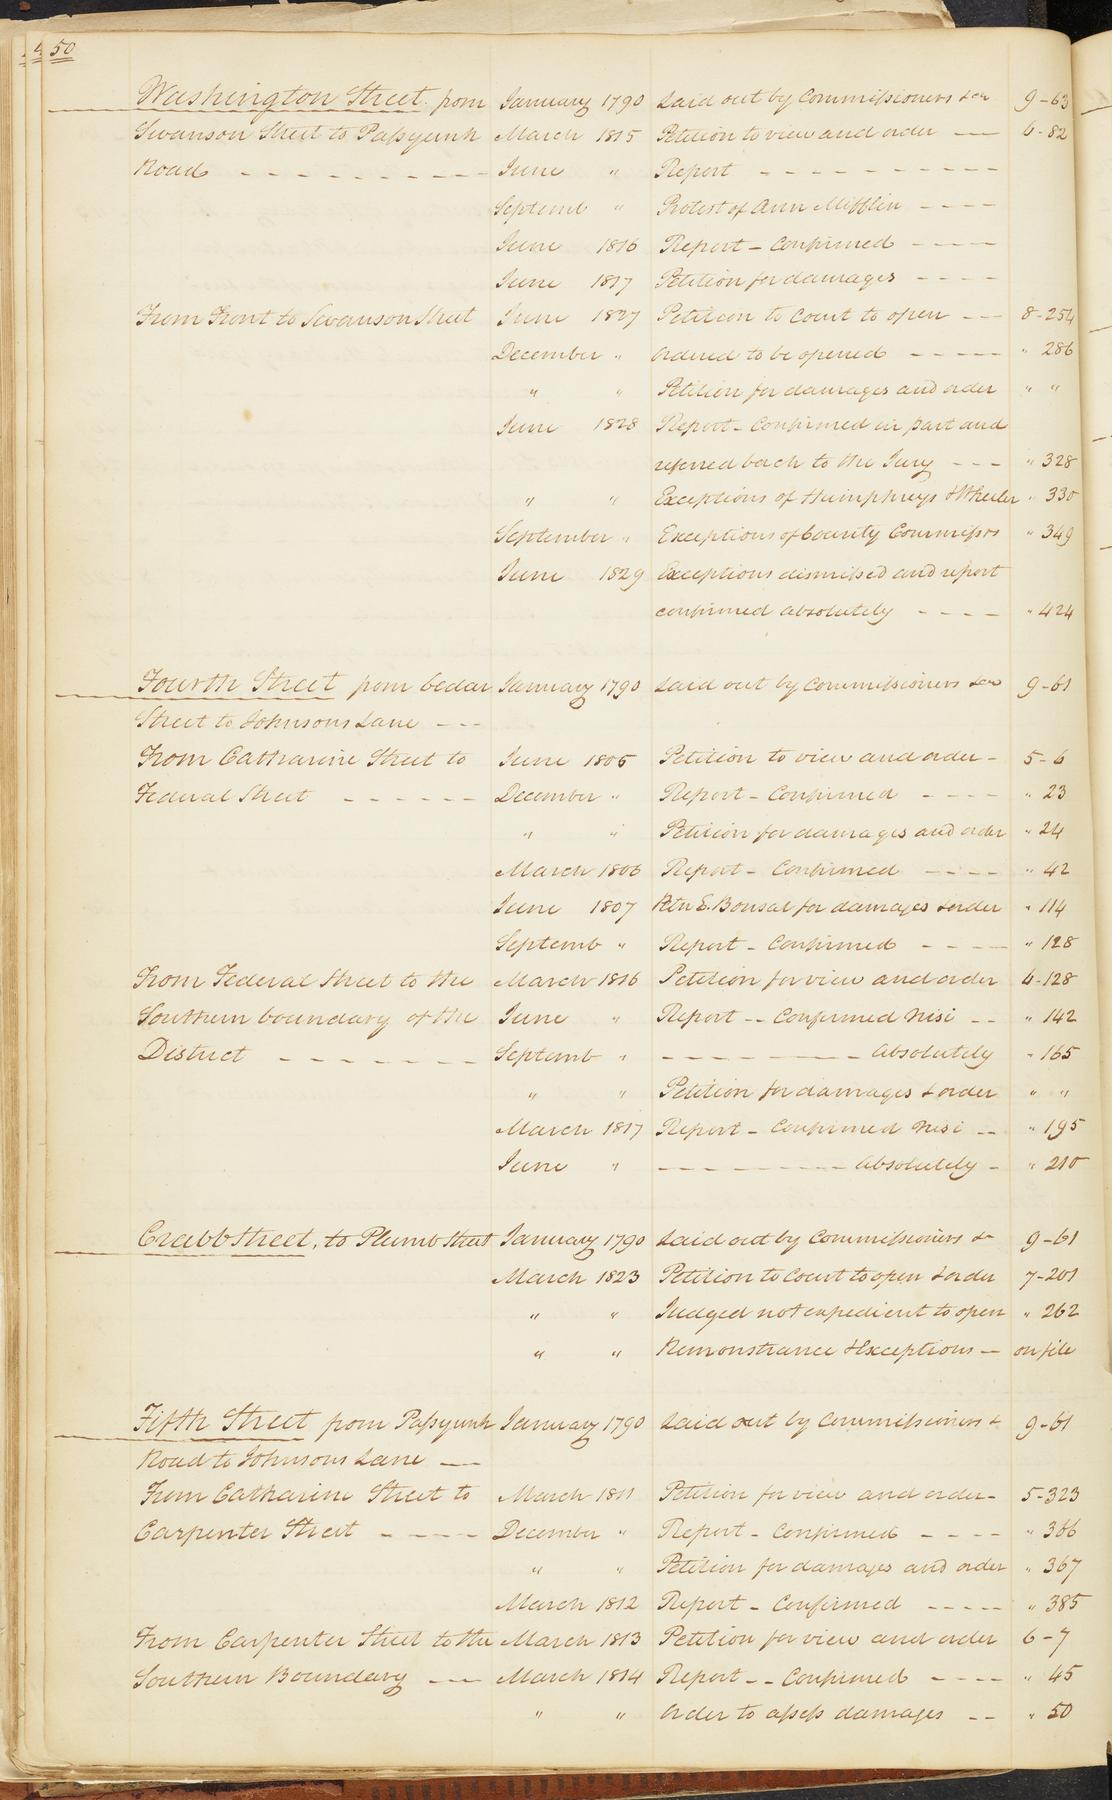 50
Washington Street from January 1790 Laid out by Commissioners &ca 9-63
Swanson Street to Passyunk March 1815 Petition to view and order — 6-82
Road - - - - - - - - - - June " Report - - - - - - - - - -
Septemb " Protest of Ann Mifflin - - - -
June 1816 Report - Confirmed - - - -
June 1817 Petition for damages - - - -
From Front to Swanson Street June 1827 Petition to Court to open - - - 8-254
December " Ordered to be opened - - - - - " 286
" " Petition for damages and order " "
June 1828 Report - Confirmed in part and
referred back to the Jury - - - " 328
" " Exceptions of Humphreys & Wheeler " 330
September " Exceptions of County Commissrs " 349
June 1829 Exceptions dismissed and report
confirmed absolutely - - - - " 424
Fourth Street from Cedar January 1790 Laid out by Commissioners &ca 9-61
Street to Johnsons Lane - - -
From Catharine Street to June 1805 Petition to view and order - 5-6
Federal Street - - - - - - December " Report - Confirmed - - - - " 23
" " Petition for damages and order " 24
March 1806 Report - Confirmed - - - - " 42
June 1807 Petn E. Bonsal for damages & order " 114
Septemb " Report - Confirmed - - - - " 128
From Federal Street to the March 1816 Petition for view and order 6-128
Southern boundary of the June " Report - - Confirmed Nisi - - " 142
District - - - - - - - Septemb " - - - - - - - - - Absolutely " 165
" " Petition for damages & order " "
March 1817 Report - Confirmed Nisi - - " 195
June " - - - - - - - - - Absolutely - " 210
Crabb Street, to Plumb Street January 1790 Laid out by Commissioners &c 9-61
March 1823 Petition to Court to open & order 7-201
" " Judged not expedient to open " 262
" " Remonstrance & Exceptions - on file
Fifth Street from Passyunk January 1790 Laid out by Commissioners & 9-61
Road to Johnsons Lane - -
From Catharine Street to March 1811 Petition for view and order - 5-323
Carpenter Street - - - - - December " Report - Confirmed - - - - " 366
" " Petition for damages and order " 367
March 1812 Report - Confirmed - - - - - " 385
From Carpenter Street to the March 1813 Petition for view and order 6-7
Southern Boundary - - - March 1814 Report - - Confirmed - - - - " 45
" " Order to assess damages - - " 50